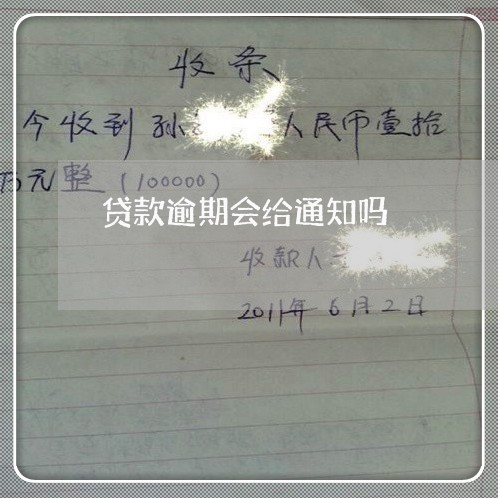 收条
今收到孙 人民币壹拾
万元整(100000)
贷款逾期会给通知吗
收款人
2011年6月2日